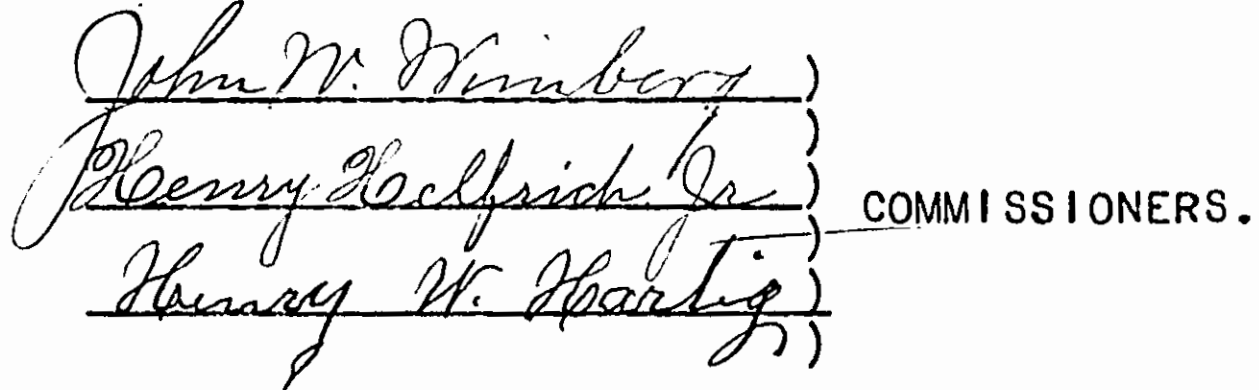 John W. Wimberg )
)
Henry Helfrich Jr. )
) COMMISSIONERS.
Henry W. Hartig )
)